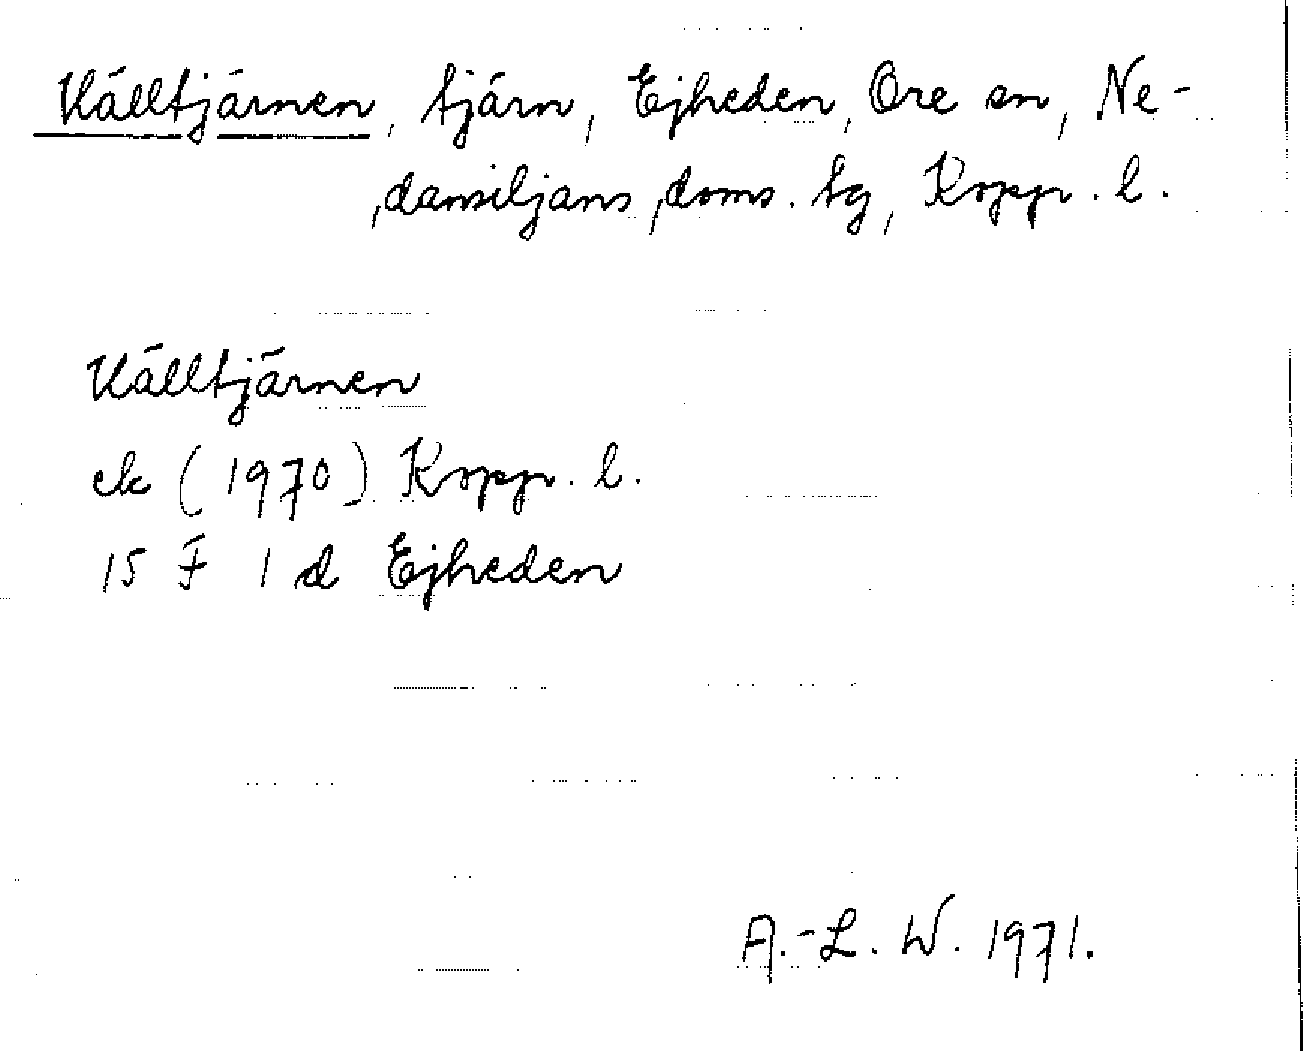 Källtjärnen, tjärn, Ejheden, Ore sn, Ne-
dansiljans doms. tg, Kopp. l.
Källtjärnen
ek (1970) Kopp. l.
15 F 1 d Ejheden
A.-L. W. 1971.